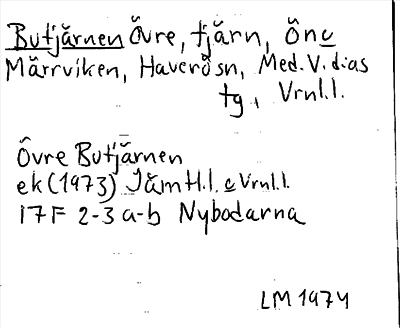 Butjärnen Övre, tjärn, Önc
Märrviken, Haverösn, Med. V. dias
tg, Vrnl.l.
Övre Butjärnen
ek (1973) Jämtl.l. c Vrnl.l.
17F 2-3 a-b Nybodarna
LM 1974